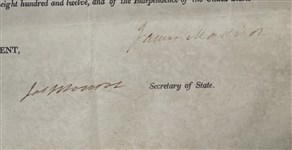 eight hundred and twelve, and of the Independence of the United States
James Madison
ENT,
Jas Monroe
Secretary of State.